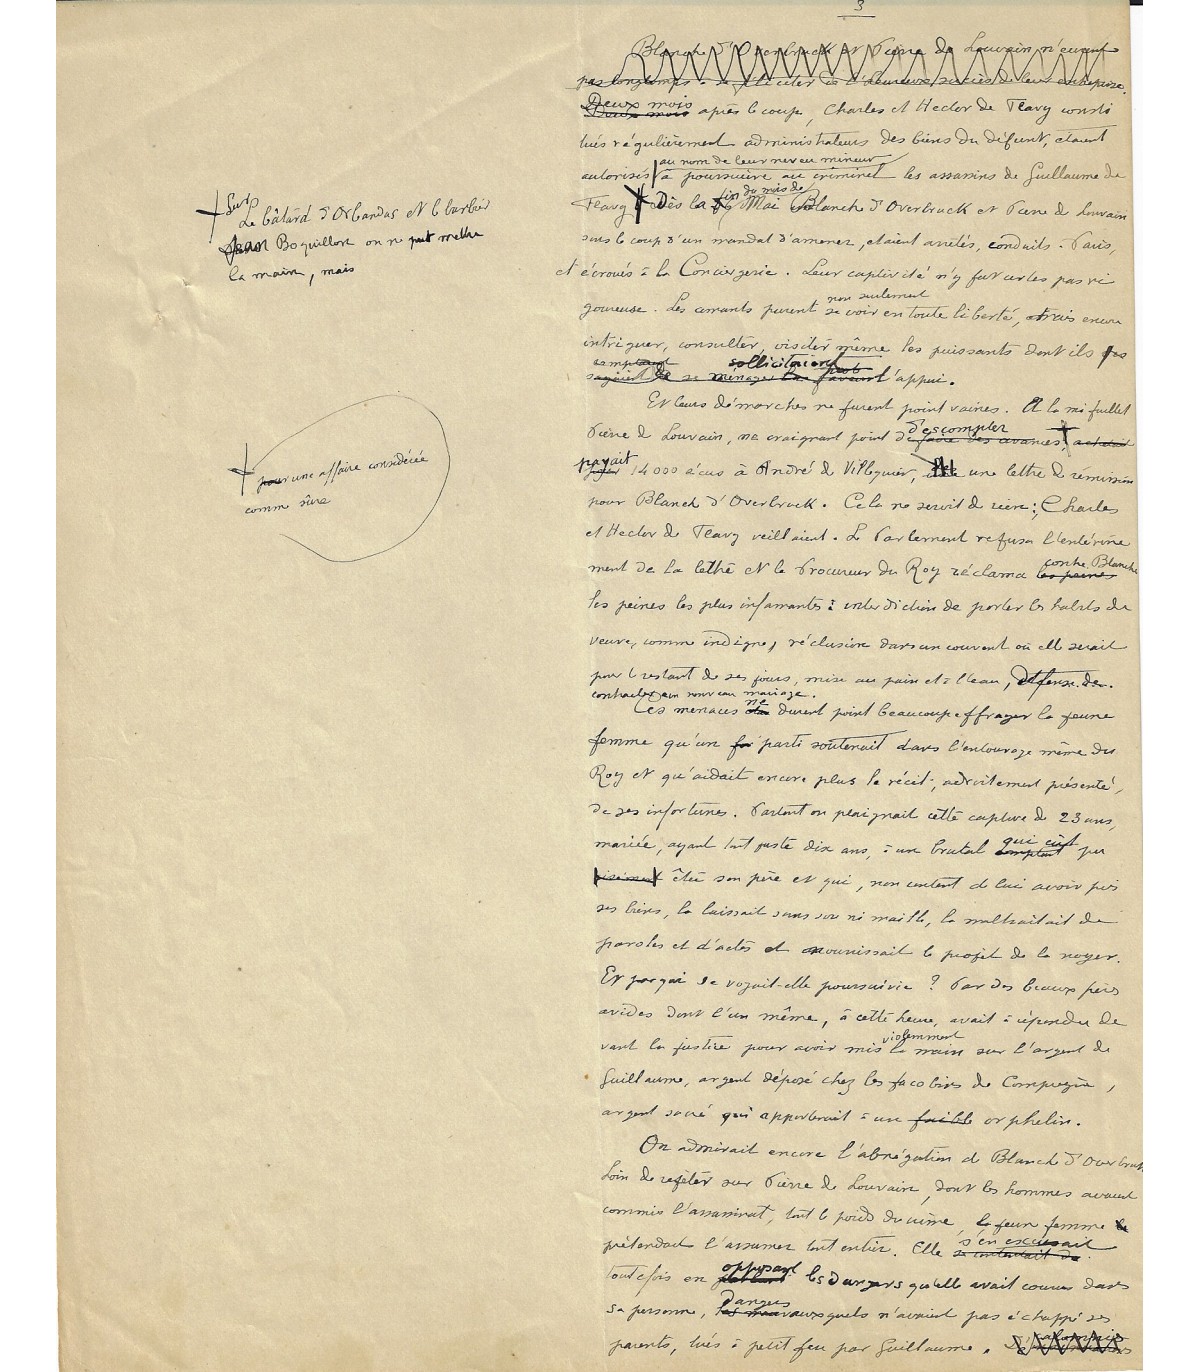 3
Blanche d'Overbruck et Pierre de Louvain n'eurent
pas longtemps à se féliciter de l'heureux succès de leur entreprise.
Deux mois
Deux mois après le coup, Charles et Hector de Flavy consti
tués régulièrement administrateurs des biens du défunt, étaient
au nom de leur neveu mineur
autorisés à poursuivre au criminel les assassins de Guillaume de
fin du mois de
Flavy. Dès la Mai Blanche d'Overbruck et Pierre de Louvain
sous le coup d'un mandat d'amener, étaient arrêtés, conduits à Paris,
et écroués à la Conciergerie. Leur captivité n'y fut certes pas ri
non seulement
goureuse. Les amants purent se voir en toute liberté, mais encore
intriguer, consulter, visiter même les puissants dont ils
comptaient sollicitaient
se ménager l'appui.
Et leurs démarches ne furent point vaines. A la mi juillet
d'escompter
Pierre de Louvain, ne craignant point de faire des avances, achetait
payait
14000 écus à André de Villequier, une lettre de rémission
pour Blanche d'Overbruck. Cela ne servit de rien; Charles
et Hector de Flavy veillaient. Le Parlement refusa l'entérine
ment de la lettre et le Procureur du Roy réclama les peines
contre Blanche
les peines les plus infamantes: interdiction de porter les habits de
veuve, comme indigne, réclusion dans un couvent où elle serait
pour l'restant de ses jours, mise au pain et à l'eau, défense de
contracter un nouveau mariage.
Ces menaces ne durent point beaucoup effrayer la jeune
femme qu'un parti soutenait dans l'entourage même du
Roy et qu'aidait encore plus le récit, adroitement présenté,
de ses infortunes. Partout on plaignait cette captive de 23 ans,
qui eût
mariée, ayant tout juste dix ans, à un brutal comptant pu
être son père et qui, non content de lui avoir pris
ses biens, la laissait sans sou ni maille, la maltraitait de
paroles et d'actes et nourrissait le projet de la noyer.
Et par qui se voyait-elle poursuivie? Par des beaux pères
avides dont l'un même, à cette heure, avait à répondre de
violemment
vant la justice pour avoir mis la main sur l'argent de
Guillaume, argent déposé chez les Jacobins de Compiègne,
argent sacré qui appartenait à un faible orphelin.
On admirait encore l'abnégation de Blanche d'Overbruck
Loin de rejeter sur Pierre de Louvain, dont les hommes avaient
commis l'assassinat, tout le poids du crime, la jeune femme
prétendait l'assumer tout entier. Elle s'en excusait
se contentait de
toutefois en opposant les dangers qu'elle avait courus dans
dangers
sa personne, auxquels n'avaient pas échappé ses
parents, tués à petit feu par Guillaume.
Sur
Le bâtard d'Orbandas et le barbier
Jean Boquillon on ne put mettre
la main, mais
pour une affaire considérée
comme sûre